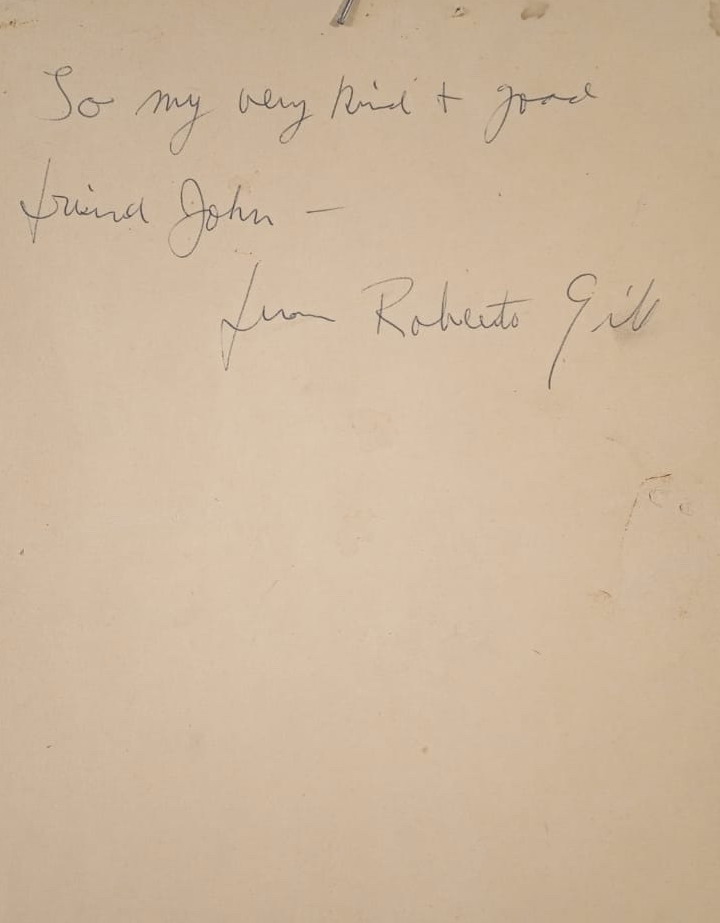 To my very kind + good
friend John —
from Roberto Gil